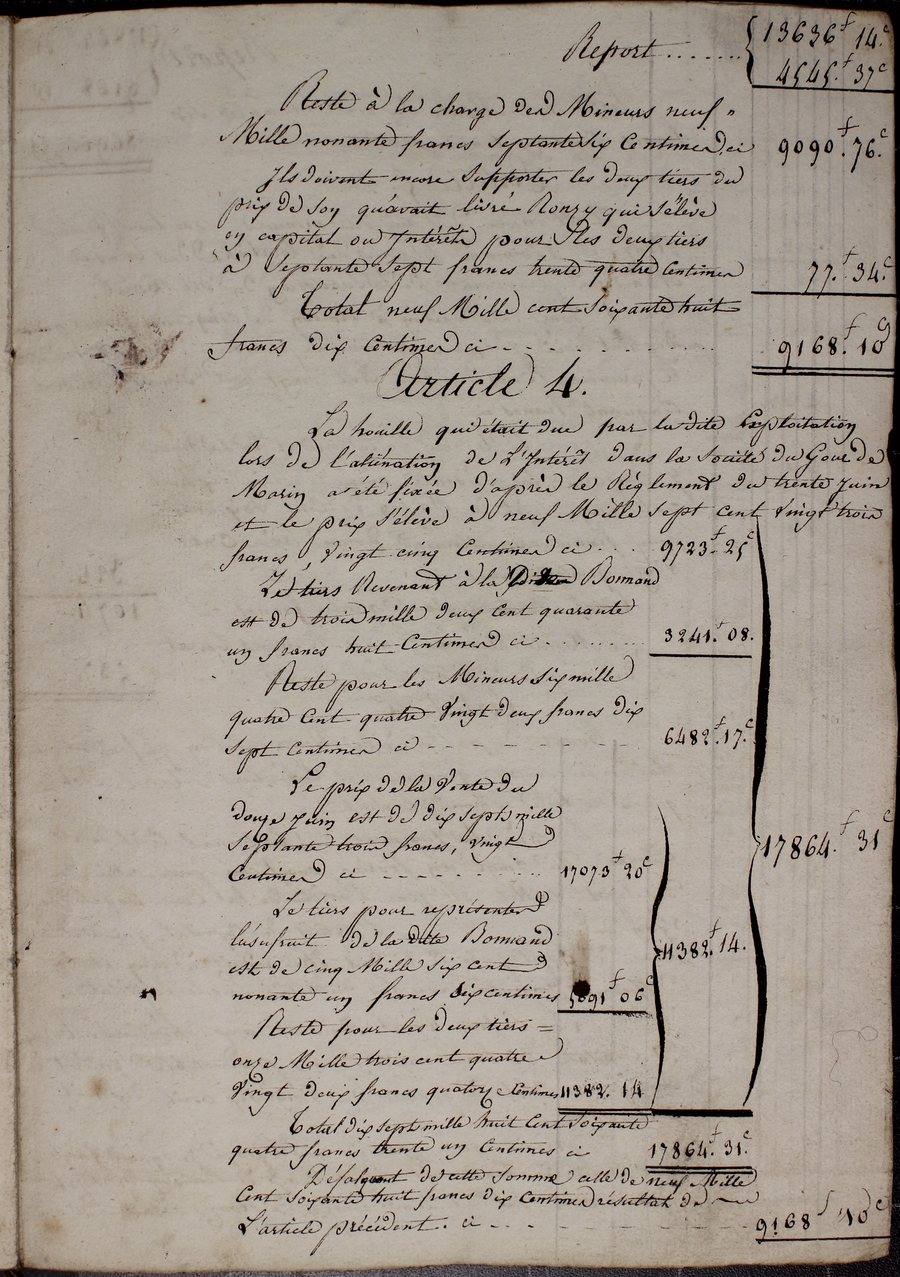 Report ....... 13636f 14c
4545.f 37c
Reste à la charge des Mineurs neuf =
Mille nonante francs Septante Six Centimes, ci 9090.f 76.c
Ils doivent encore Supporter les deux tiers du
prix de foy qu'avait livré Ronzy qui s'élève
en capital ou Intérêts pour les deux tiers
à Septante Sept francs trente quatre Centimes 77.f 34.c
Total neuf Mille cent Soixante huit
francs dix Centimes ci - . . . . . . . . . . 9168.f 10c
Article 4.
La houille qui était due par la dite Exploitation
lors de l'aliénation de L'Intérêt dans la Société du Gour de
Marin a été fixée d'après le Règlement du trente Juin
et le prix S'élève à neuf Mille Sept cent Vingt trois
francs, Vingt cinq Centimes ci . . . 9723.f 25c
Le tiers Revenant à la Bonnand
est de trois mille deux Cent quarante
un francs huit Centimes ci . . . . . . . 3241.f 08.
Reste pour les Mineurs Six mille
quatre Cent quatre Vingt deux francs dix
Sept Centimes ci - - - - - - - 6482f.17.c
Le prix de la Vente du
douze Juin est de dix Sept mille
Septante trois francs, Vingt
Centimes ci - - - - - - - 17073f 20c
17864.f 31c
Le tiers pour représenter
l'usufruit de la dite Bonnand
est de cinq Mille Six cent
nonante un francs Six centimes 5691f 06c
11382.f 14.
Reste pour les deux tiers =
onze Mille trois cent quatre
Vingt deux francs quatorze Centimes 11382. 14
Total dix Sept mille huit Cent Soixante
quatre francs trente un Centimes ci 17864.f 31.c
Défalquant de cette Somme celle de neuf Mille
Cent Soixante huit francs dix Centimes résultat de
L'article précédent . . ci - - - - - - 9168f 10c